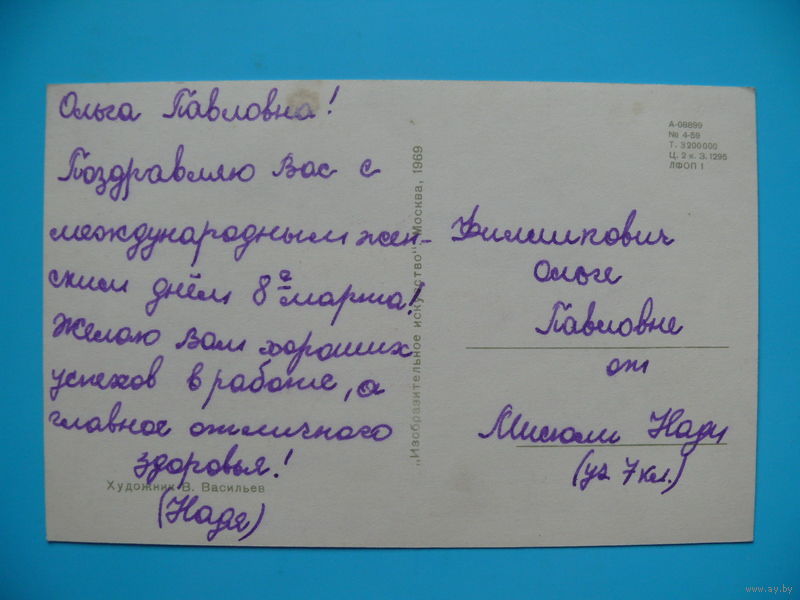 Ольга Павловна!
Поздравляю Вас с
международным жен-
ским днём 8 е марта!
Желаю Вам хороших
успехов в работе, а
главное отличного
здоровья!
Художник В. Васильев
(Надя)
„Изобразительное искусство“ Москва, 1969
А-08899
№ 4-59
Т. 3200000
Ц. 2 к. З. 1295
ЛФОП 1
Ольге
Павловне
от
Нади
(уч 7 кл.)
www.ay.by